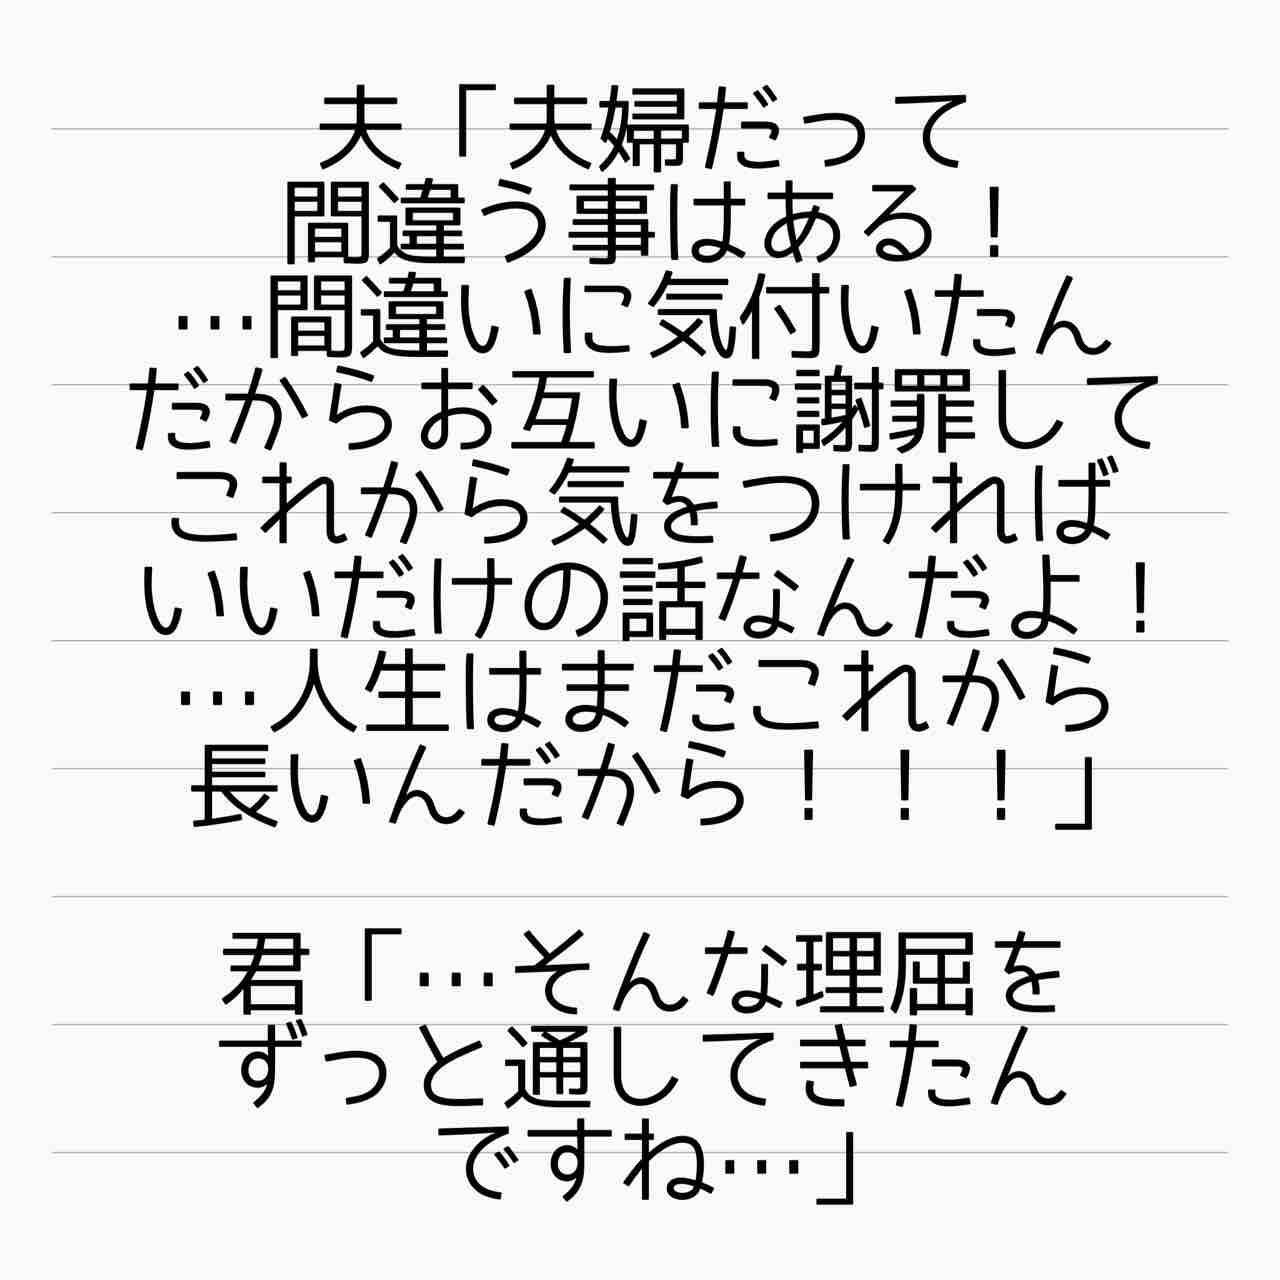 夫「夫婦だって
間違う事はある！
…間違いに気付いたん
だからお互いに謝罪して
これから気をつければ
いいだけの話なんだよ！
…人生はまだこれから
長いんだから！！！」
君「…そんな理屈を
ずっと通してきたん
ですね…」